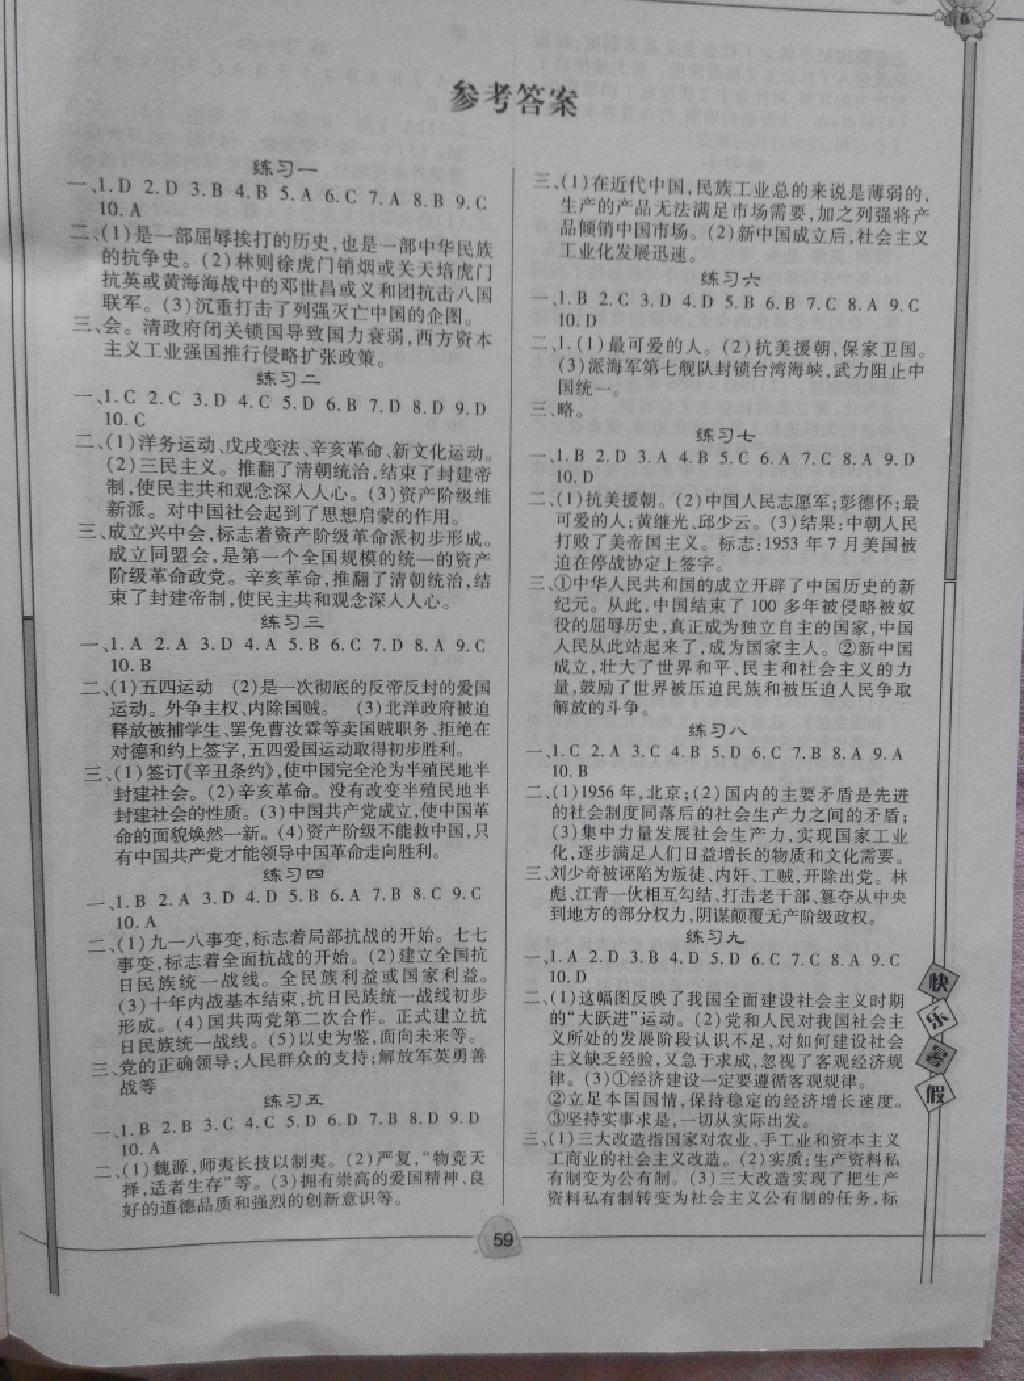 参考答案
练习一
一、1.D 2.D 3.B 4.B 5.A 6.C 7.A 8.B 9.C
10.A
二、(1)是一部屈辱挨打的历史,也是一部中华民族
的抗争史。(2)林则徐虎门销烟或关天培虎门
抗英或黄海海战中的邓世昌或义和团抗击八国
联军。(3)沉重打击了列强灭亡中国的企图。
三、会。清政府闭关锁国导致国力衰弱,西方资本
主义工业强国推行侵略扩张政策。
练习二
一、1.C 2.C 3.D 4.C 5.D 6.B 7.D 8.D 9.D
10.C
二、(1)洋务运动、戊戌变法、辛亥革命、新文化运动。
(2)三民主义。推翻了清朝统治,结束了封建帝
制,使民主共和观念深入人心。(3)资产阶级维
新派。对中国社会起到了思想启蒙的作用。
三、成立兴中会,标志着资产阶级革命派初步形成。
成立同盟会,是第一个全国规模的统一的资产
阶级革命政党。辛亥革命,推翻了清朝统治,结
束了封建帝制,使民主共和观念深人人心。
练习三
一、1.A 2.A 3.D 4.A 5.B 6.C 7.D 8.A 9.C
10.B
二、(1)五四运动 (2)是一次彻底的反帝反封的爱国
运动。外争主权、内除国贼。 (3)北洋政府被迫
释放被捕学生、罢免曹汝霖等卖国贼职务、拒绝在
对德和约上签字,五四爱国运动取得初步胜利。
三、(1)签订《辛丑条约》,使中国完全沦为半殖民地半
封建社会。(2)辛亥革命。没有改变半殖民地半
封建社会的性质。(3)中国共产党成立,使中国革
命的面貌焕然一新。(4)资产阶级不能救中国,只
有中国共产党才能领导中国革命走向胜利。
练习四
一、1.B 2.A 3.D 4.D 5.A 6.D 7.B 8.C 9.C
10.A
二、(1)九一八事变,标志着局部抗战的开始。七七
事变,标志着全面抗战的开始。(2)建立全国抗
日民族统一战线。全民族利益或国家利益。
(3)十年内战基本结束,抗日民族统一战线初步
形成。(4)国共两党第二次合作。正式建立抗
日民族统一战线。(5)以史为鉴,面向未来等。
三、党的正确领导;人民群众的支持;解放军英勇善
战等
练习五
一、1.B 2.B 3.C 4.C 5.D 6.D 7.B 8.D 9.D
10.A
二、(1)魏源,师夷长技以制夷。(2)严复,“物竞天
择,适者生存”等。(3)拥有崇高的爱国精神、良
好的道德品质和强烈的创新意识等。
三、(1)在近代中国,民族工业总的来说是薄弱的,
生产的产品无法满足市场需要,加之列强将产
品倾销中国市场。(2)新中国成立后,社会主义
工业化发展迅速。
练习六
一、1.B 2.C 3.D 4.D 5.B 6.B 7.C 8.A 9.C
10.D
二、1.(1)最可爱的人。(2)抗美援朝,保家卫国。
(3)派海军第七舰队封锁台湾海峡,武力阻止中
国统一。
三、略。
练习七
一、1.B 2.D 3.A 4.B 5.C 6.A 7.C 8.A 9.D
10.D
二、(1)抗美援朝。(2)中国人民志愿军;彭德怀;最
可爱的人;黄继光、邱少云。(3)结果:中朝人民
打败了美帝国主义。标志:1953年7月美国被
迫在停战协定上签字。
三、①中华人民共和国的成立开辟了中国历史的新
纪元。从此,中国结束了100多年被侵略被奴
役的屈辱历史,真正成为独立自主的国家,中国
人民从此站起来了,成为国家主人。②新中国
成立,壮大了世界和平、民主和社会主义的力
量,鼓励了世界被压迫民族和被压迫人民争取
解放的斗争。
练习八
一、1.C 2.A 3.C 4.B 5.D 6.C 7.B 8.A 9.A
10.B
二、(1)1956年,北京;(2)国内的主要矛盾是先进
的社会制度同落后的社会生产力之间的矛盾;
(3)集中力量发展社会生产力,实现国家工业
化,逐步满足人们日益增长的物质和文化需要。
三、刘少奇被诬陷为叛徒、内奸、工贼,开除出党。林
彪、江青一伙相互勾结、打击老干部、篡夺从中央
到地方的部分权力,阴谋颠覆无产阶级政权。
练习九
一、1.A 2.D 3.B 4.D 5.C 6.C 7.C 8.A 9.C
10.D
二、(1)这幅图反映了我国全面建设社会主义时期
的“大跃进”运动。(2)党和人民对我国社会主
义所处的发展阶段认识不足,对如何建设社会
主义缺乏经验,又急于求成,忽视了客观经济规
律。(3)①经济建设一定要遵循客观规律。
②立足本国国情,保持稳定的经济增长速度。
③坚持实事求是,一切从实际出发。
三、(1)三大改造指国家对农业、手工业和资本主义
工商业的社会主义改造。(2)实质:生产资料私
有制变为公有制。(3)三大改造实现了把生产
资料私有制转变为社会主义公有制的任务,标
快乐暑假
59